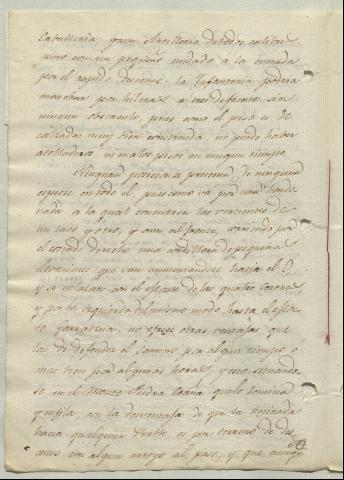 Caballeria, gruesa Artilleria de todo calibre
pero con un pequeño cuidado a la entrada
por el rapido descenso. la Infanteria podra
marchar por hileras a tres de frente sin
ningun obstaculo, pues como el piso es de
calzada muy bien construida no puede haber
atolladeros, ni malos pisos en ningun tiempo.
Ninguna posicion se presenta de ninguna
especie en todo el, pues como va por una honda-
nada a la qual concurren las vertientes de
un lado y otro, y aun al frente, corriendo por
el costado derecho una cordillera de pequeña
elevaciones que van aumentandose hasta el O.
y se enlazan con el de las quales corona
y por la izquierda del mismo modo hasta el
te no ofrece otras ventajas que
las de defender el camino por algun tiempo o
mas bien por algunas horas, y eso situando-
se en el Monte Piedra que lo domina
y enfila, con la desventaja de que la Retirada
hacia qualquier Punto, es por terreno de
con algun arroyo al paso, y que aunq.